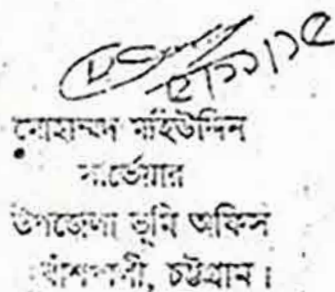 মোহাম্মদ মহিউদ্দিন
সার্ভেয়ার
উপজেলা ভূমি অফিস
বাঁশখালী, চট্টগ্রাম।